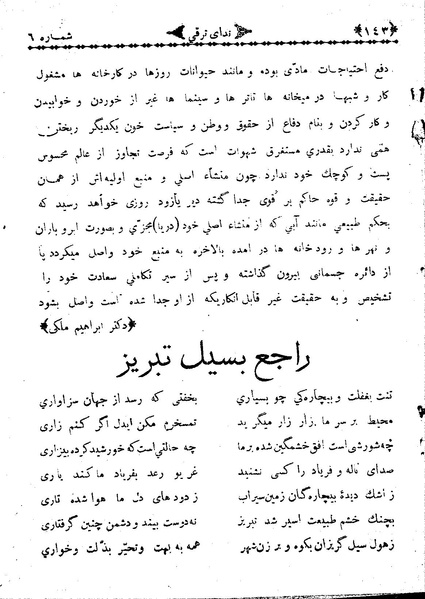 ﴿۱۴۳﴾ ندای ترقی شماره ۶
دفع احتیاجات مادّی بوده و مانند حیوانات روزها در کارخانه ها مشغول
کار و شبها در میخانه ها تاتر ها و سینما ها غیر از خوردن و خوابیدن
و کار کردن و بنام دفاع از حقوق و وطن و سیاست خون یکدیگر ریختن
همّی ندارد بقدری مستغرق شهوات است که فرصت تجاوز از عالم محسوس
پست و کوچك خود ندارد چون منشأء اسلی و منبع اولیه‌اش از همان
حقیقت و قوه حاکم بر قوی جدا گشته دیر یازود روزی خواهد رسید که
بحکم طبیعی مانند آبی که از منشاء اصلی خود (دریا) مجزّی و بصورت ابر و باران
و نهر ها و رودخانه ها در امده بالاخره به منبع خود واصل میگردد یا
از دائره جسمانی بیرون گذاشته و پس از سیر تکاملی سعادت خود را
تشخیص و به حقیقت غیر قابل انکاریکه از او جدا شده است واصل بشود
﴿دکتر ابراهیم ملکی﴾
راجع بسیل تبریز
تنت بغفلت و بیچارکی چو بسیاری بخفتی که رسد از جهان سزاواری
محیط بر سر ما زار زار میگرید تمسخرم مکن ایدل اگر کنم زاری
چه شورشی است افق خشمگین شده بر ما چه حالتی است که خورشید کرده بیزاری
صدای ناله و فریاد را کسی نشنید غریو رعد بفریاد ما کند یاری
ز اشك دیدۀ بیچارگان زمین سیراب ز دود های دل ما هوا شده تاری
بچنك خشم طبیعت اسیر شد تبریز نه دوست بیند و دشمن چنین گرفتاری
ز هول سیل گریزان بکوه و بر زن شهر همه به بهت و تحیّر بذلّت و خواری